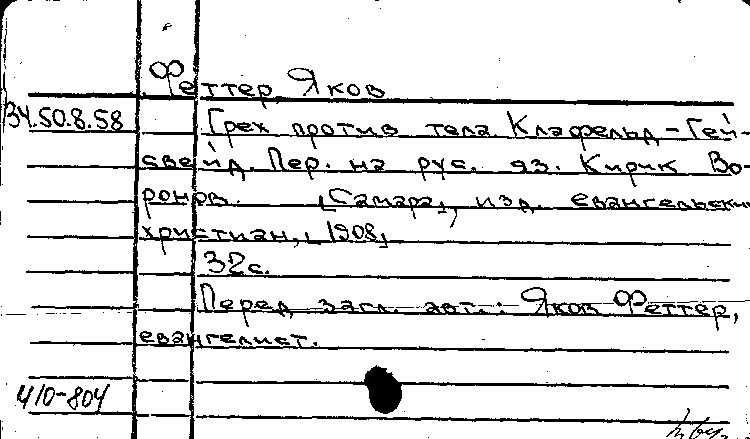 Феттер Яков
34.50.8.58
Грех против тела Клафельд-Гей-
свейд. Пер. на рус. яз. Кирик Во-
ронов. [Самара], изд. евангельских
христиан, [1908]
32с.
Перед загл. авт.: Яков Феттер,
евангелист.
4/0-804